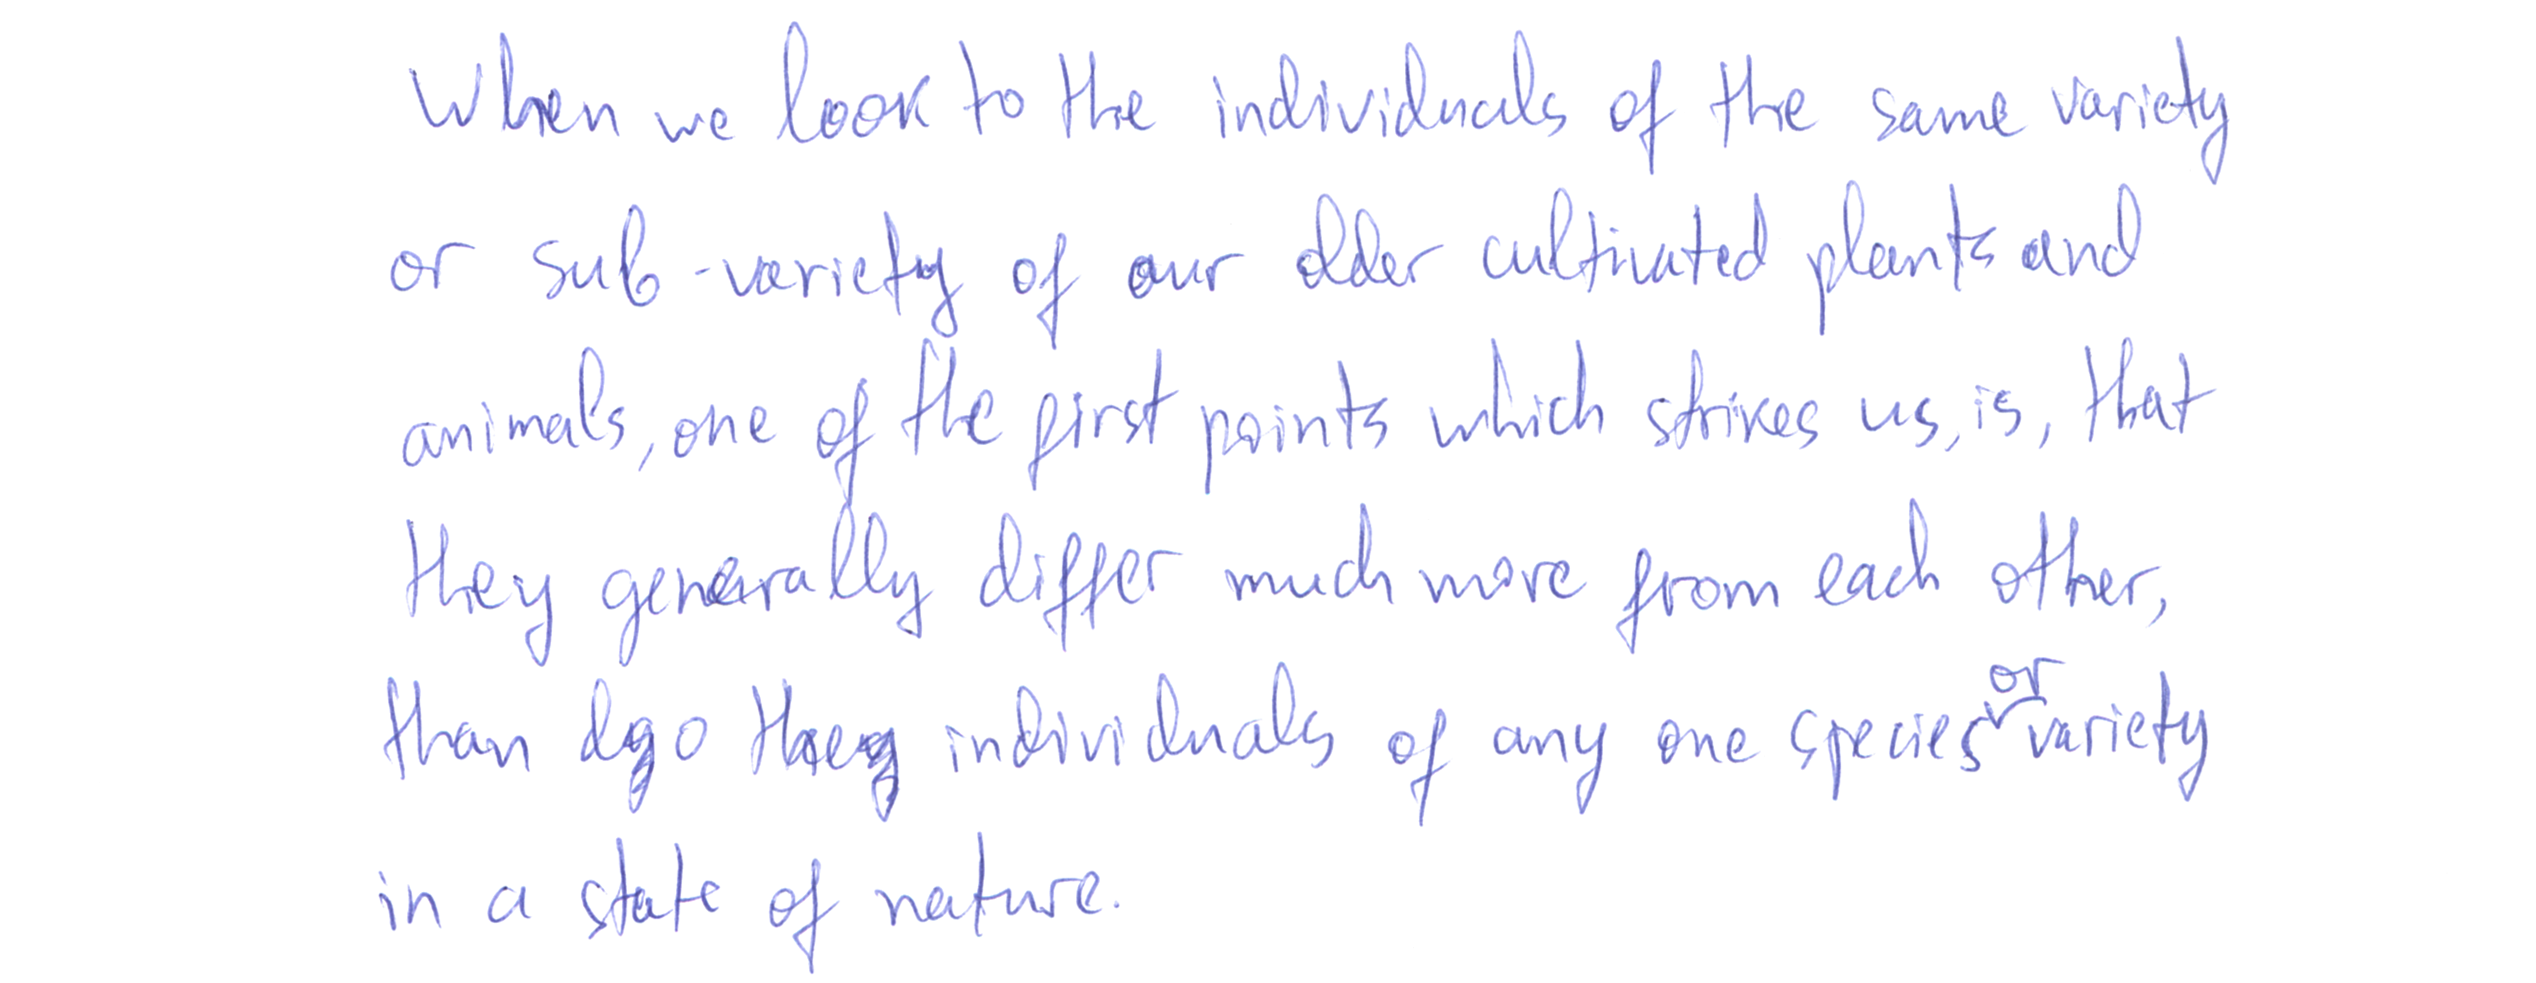 When we look to the individuals of the same variety
or sub-variety of our older cultivated plants and
animals, one of the first points which strikes us, is, that
they generally differ much more from each other,
than do the individuals of any one species or variety
in a state of nature.